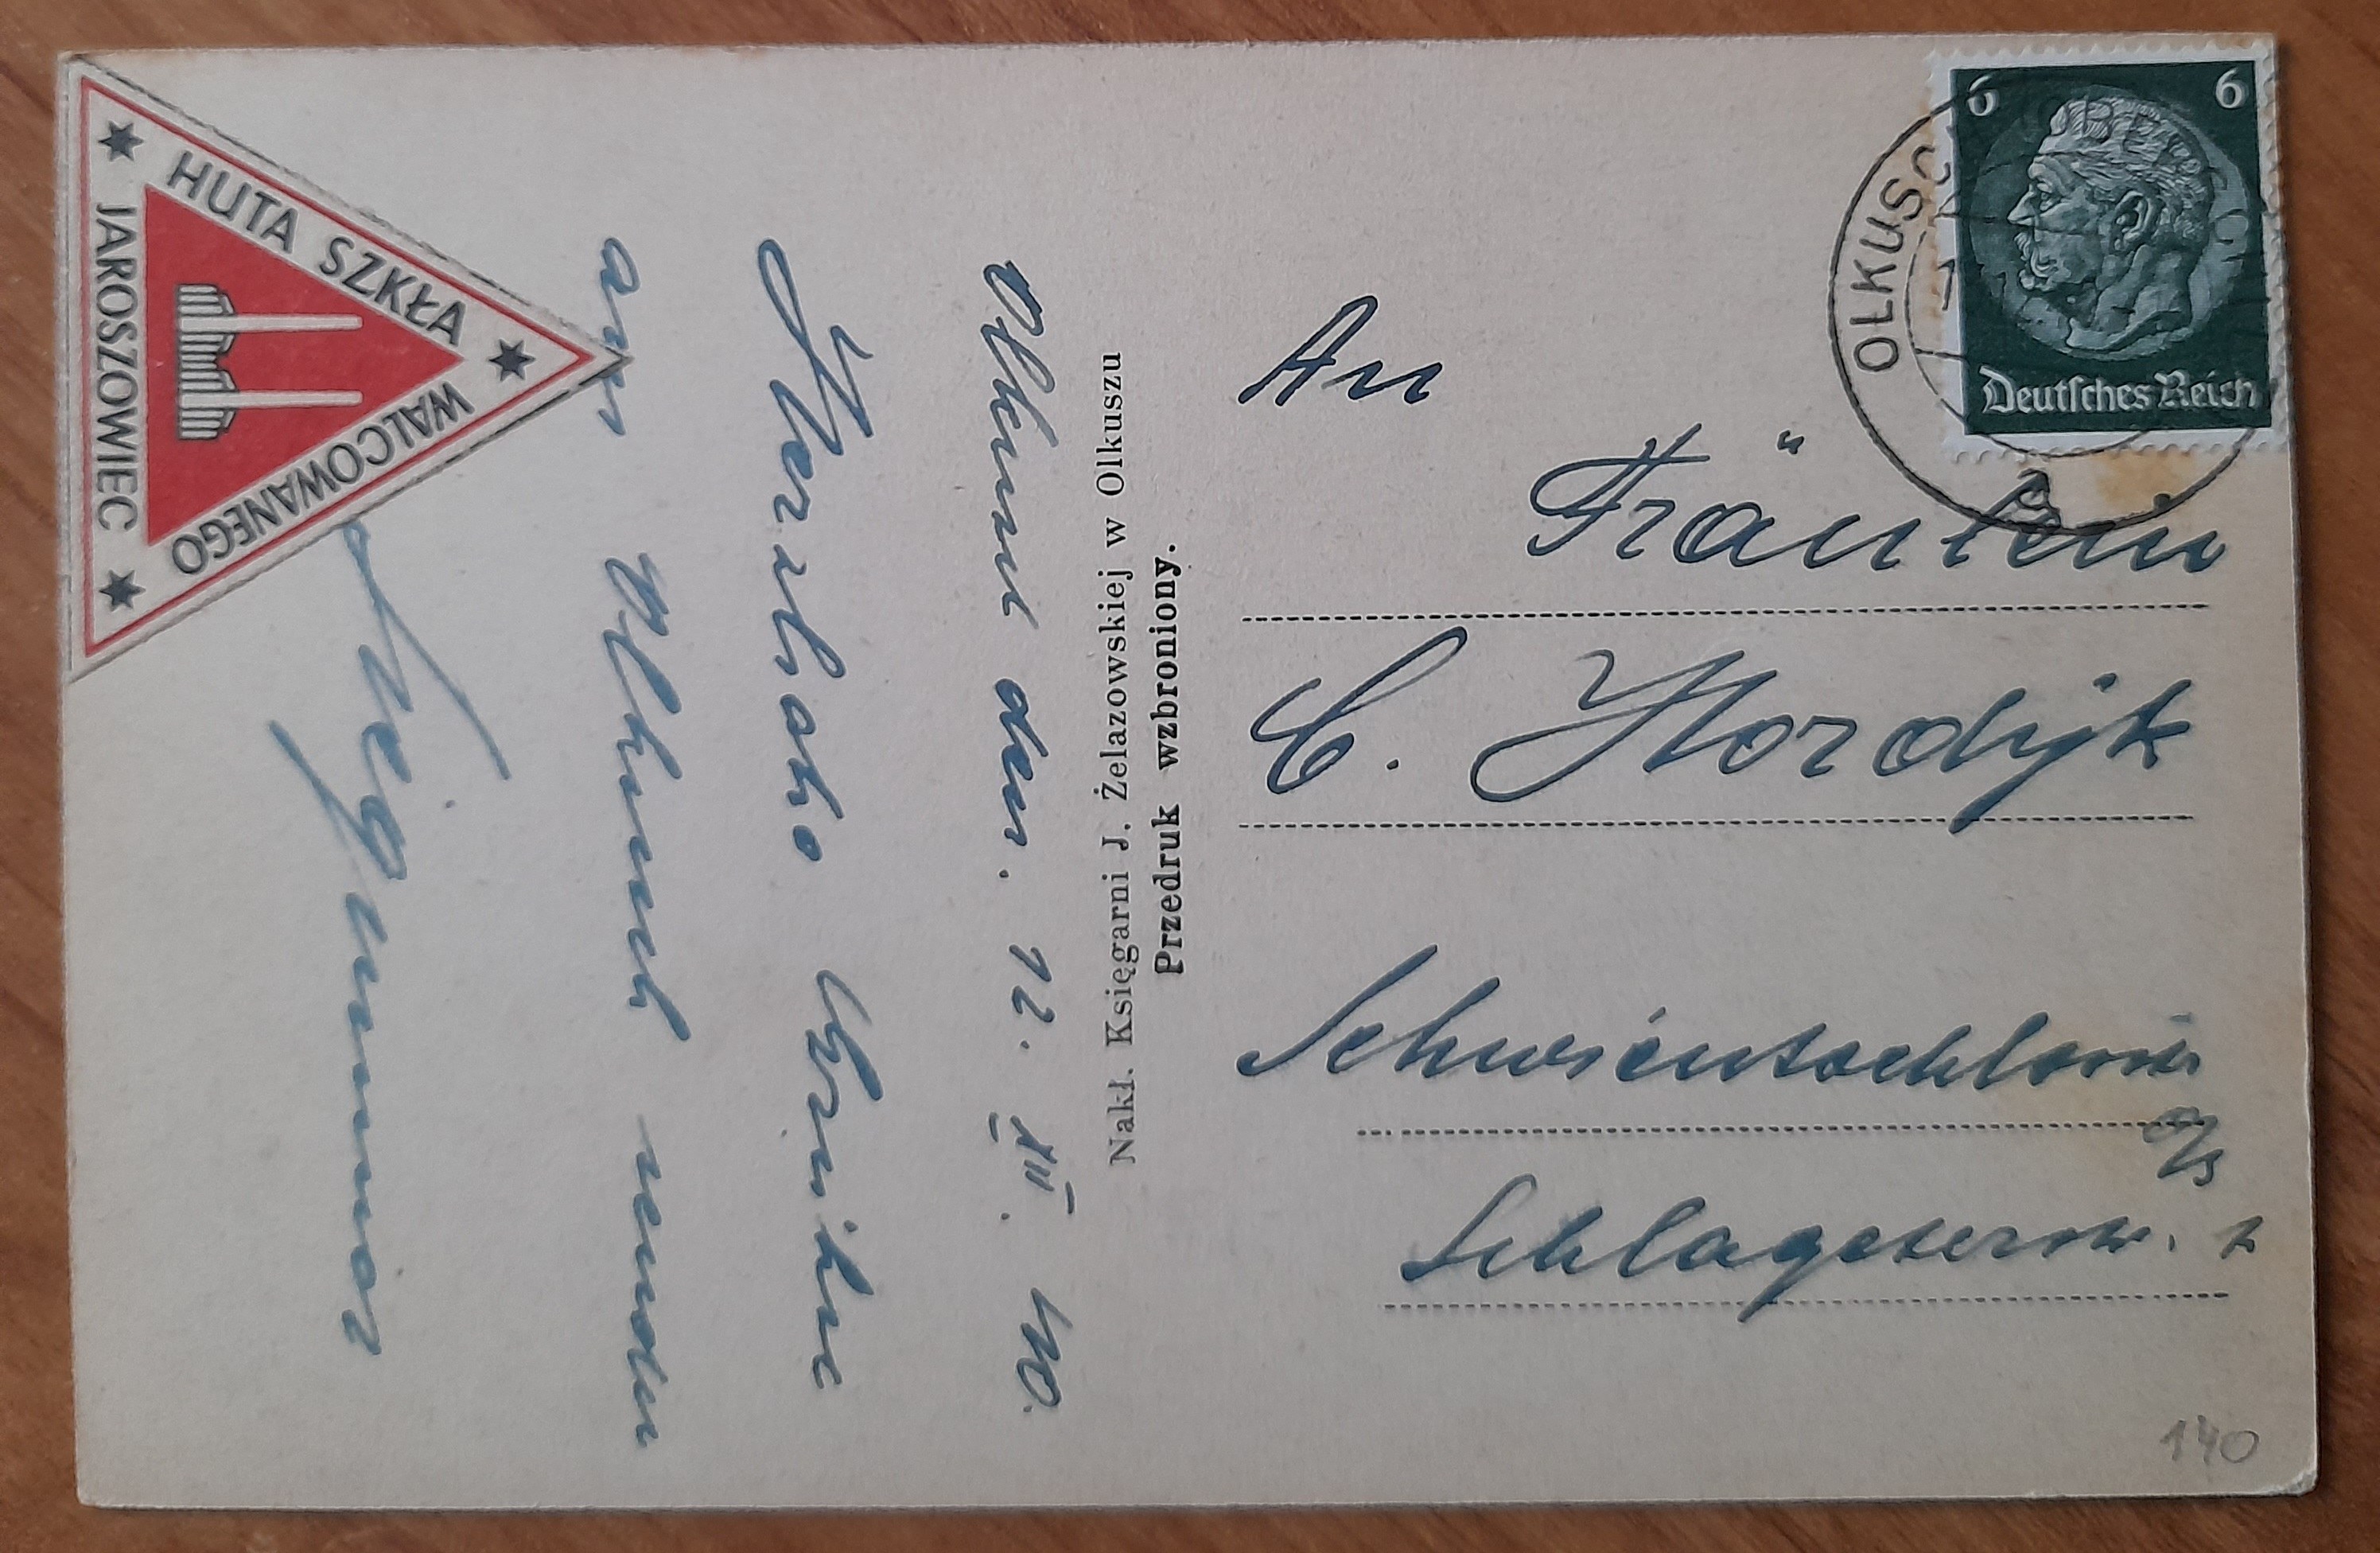 HUTA SZKŁA
WALCOWANEGO
JAROSZOWIEC
Olkusz den. 12. XII. 40.
Herzliche Grüße
aus Olkusch sendet
Siegmund
Nakł. Księgarni J. Żelazowskiej w Olkuszu
Przedruk wzbroniony.
6 6
Deutsches Reich
OLKUSCH
a
An
Fräulein
C. Hordijk
Schwientochlowitz
O/S
Schlageterstr. 2
140